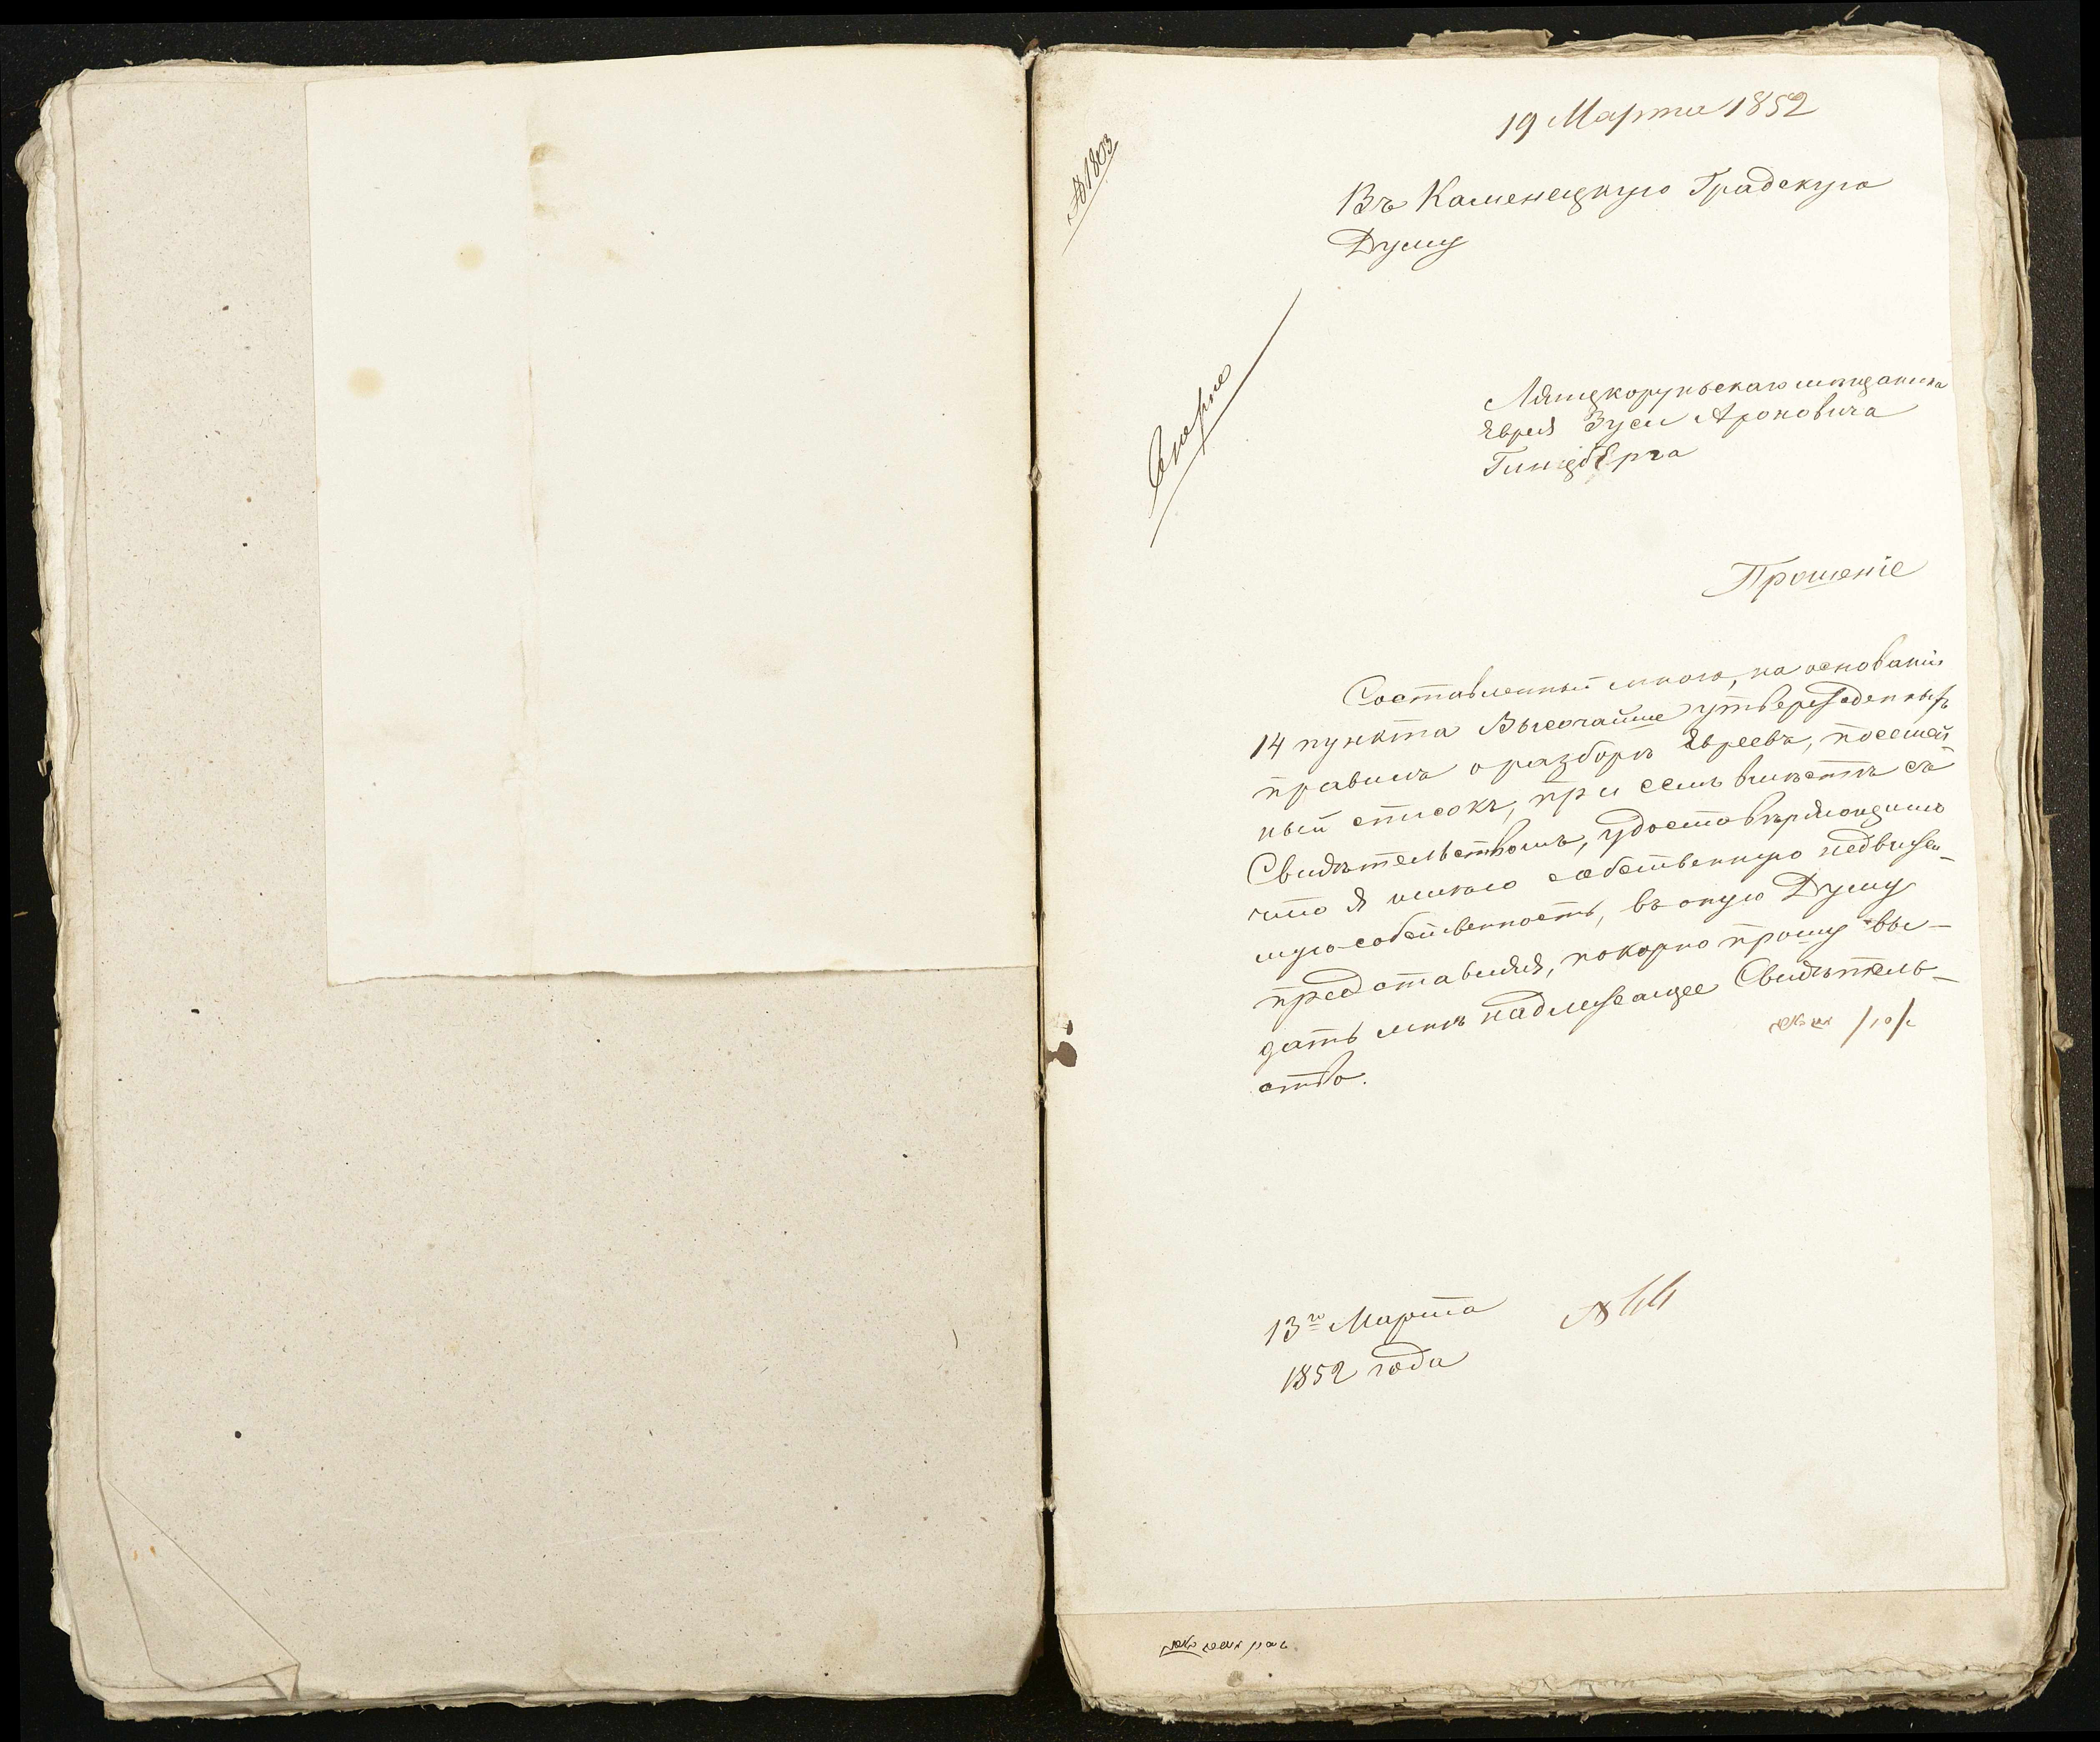 19 Марта 1852
№ 1803
Въ Каменецкую Градскую
Думу
Лянцкоруньскаго мѣщанина
Еврея Зуси Ароновича
Гинцберга
Прошеніе
Составленный мною, на основаніи
14 пункта Высочайше утвержденныхъ
правилъ о разборѣ Евреевъ, посемей
ный списокъ, при семъ вмѣстѣ съ
Свидѣтельствомъ, удостовѣряющимъ
что я имѣю собственную недвижи-
мую собственность, въ оную Думу
представляя, покорно прошу вы-
дать мнѣ надлежащее Свидѣтель-
ство.
13го Марта
1852 года
№ 44